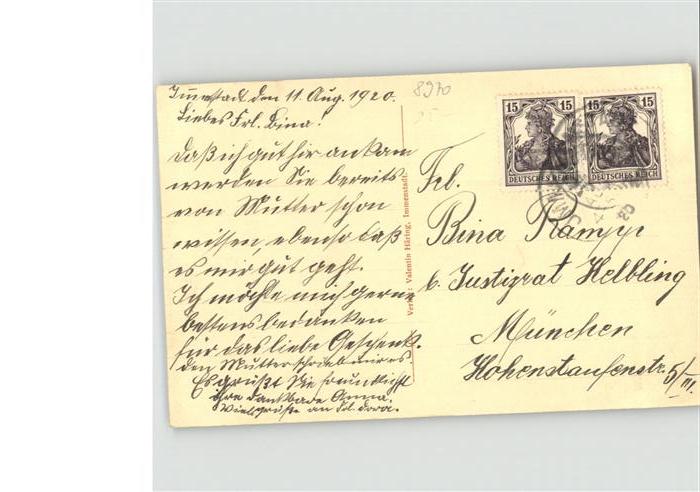 Immenstadt den 11. Aug. 1920.
Liebes Frl. Bina!
Daß ich gut hir ankam
werden Sie bereits
von Mutter schon
wissen, ebenso daß
es mir gut geht.
Ich möchte mich gerne
bestens bedanken
für das liebe Geschenk.
den Mutter schrieb mir es
Es grüßt Sie freundlichst
ihre dankbare Anna.
Viele grüße an Frl. Dora.
8970
Verlag: Valentin Häring, Immenstadt.
15 15
DEUTSCHES REICH
15 15
DEUTSCHES REICH
Frl.
Bina Rampp
b. Justizrat Helbling
München
Hohenstaufenstr. 5/III.